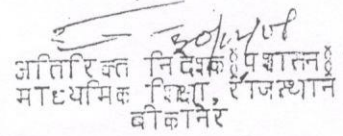 अतिरिक्त निदेशक ॄपशासनॄ
माध्यमिक शिक्षा, राजस्थान
बीकानेर